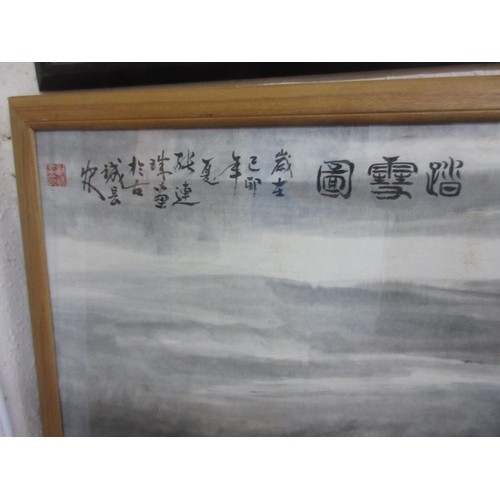 踏雪圖
歲在
己卯
年
夏
張連
珠畫
於古
城長
安